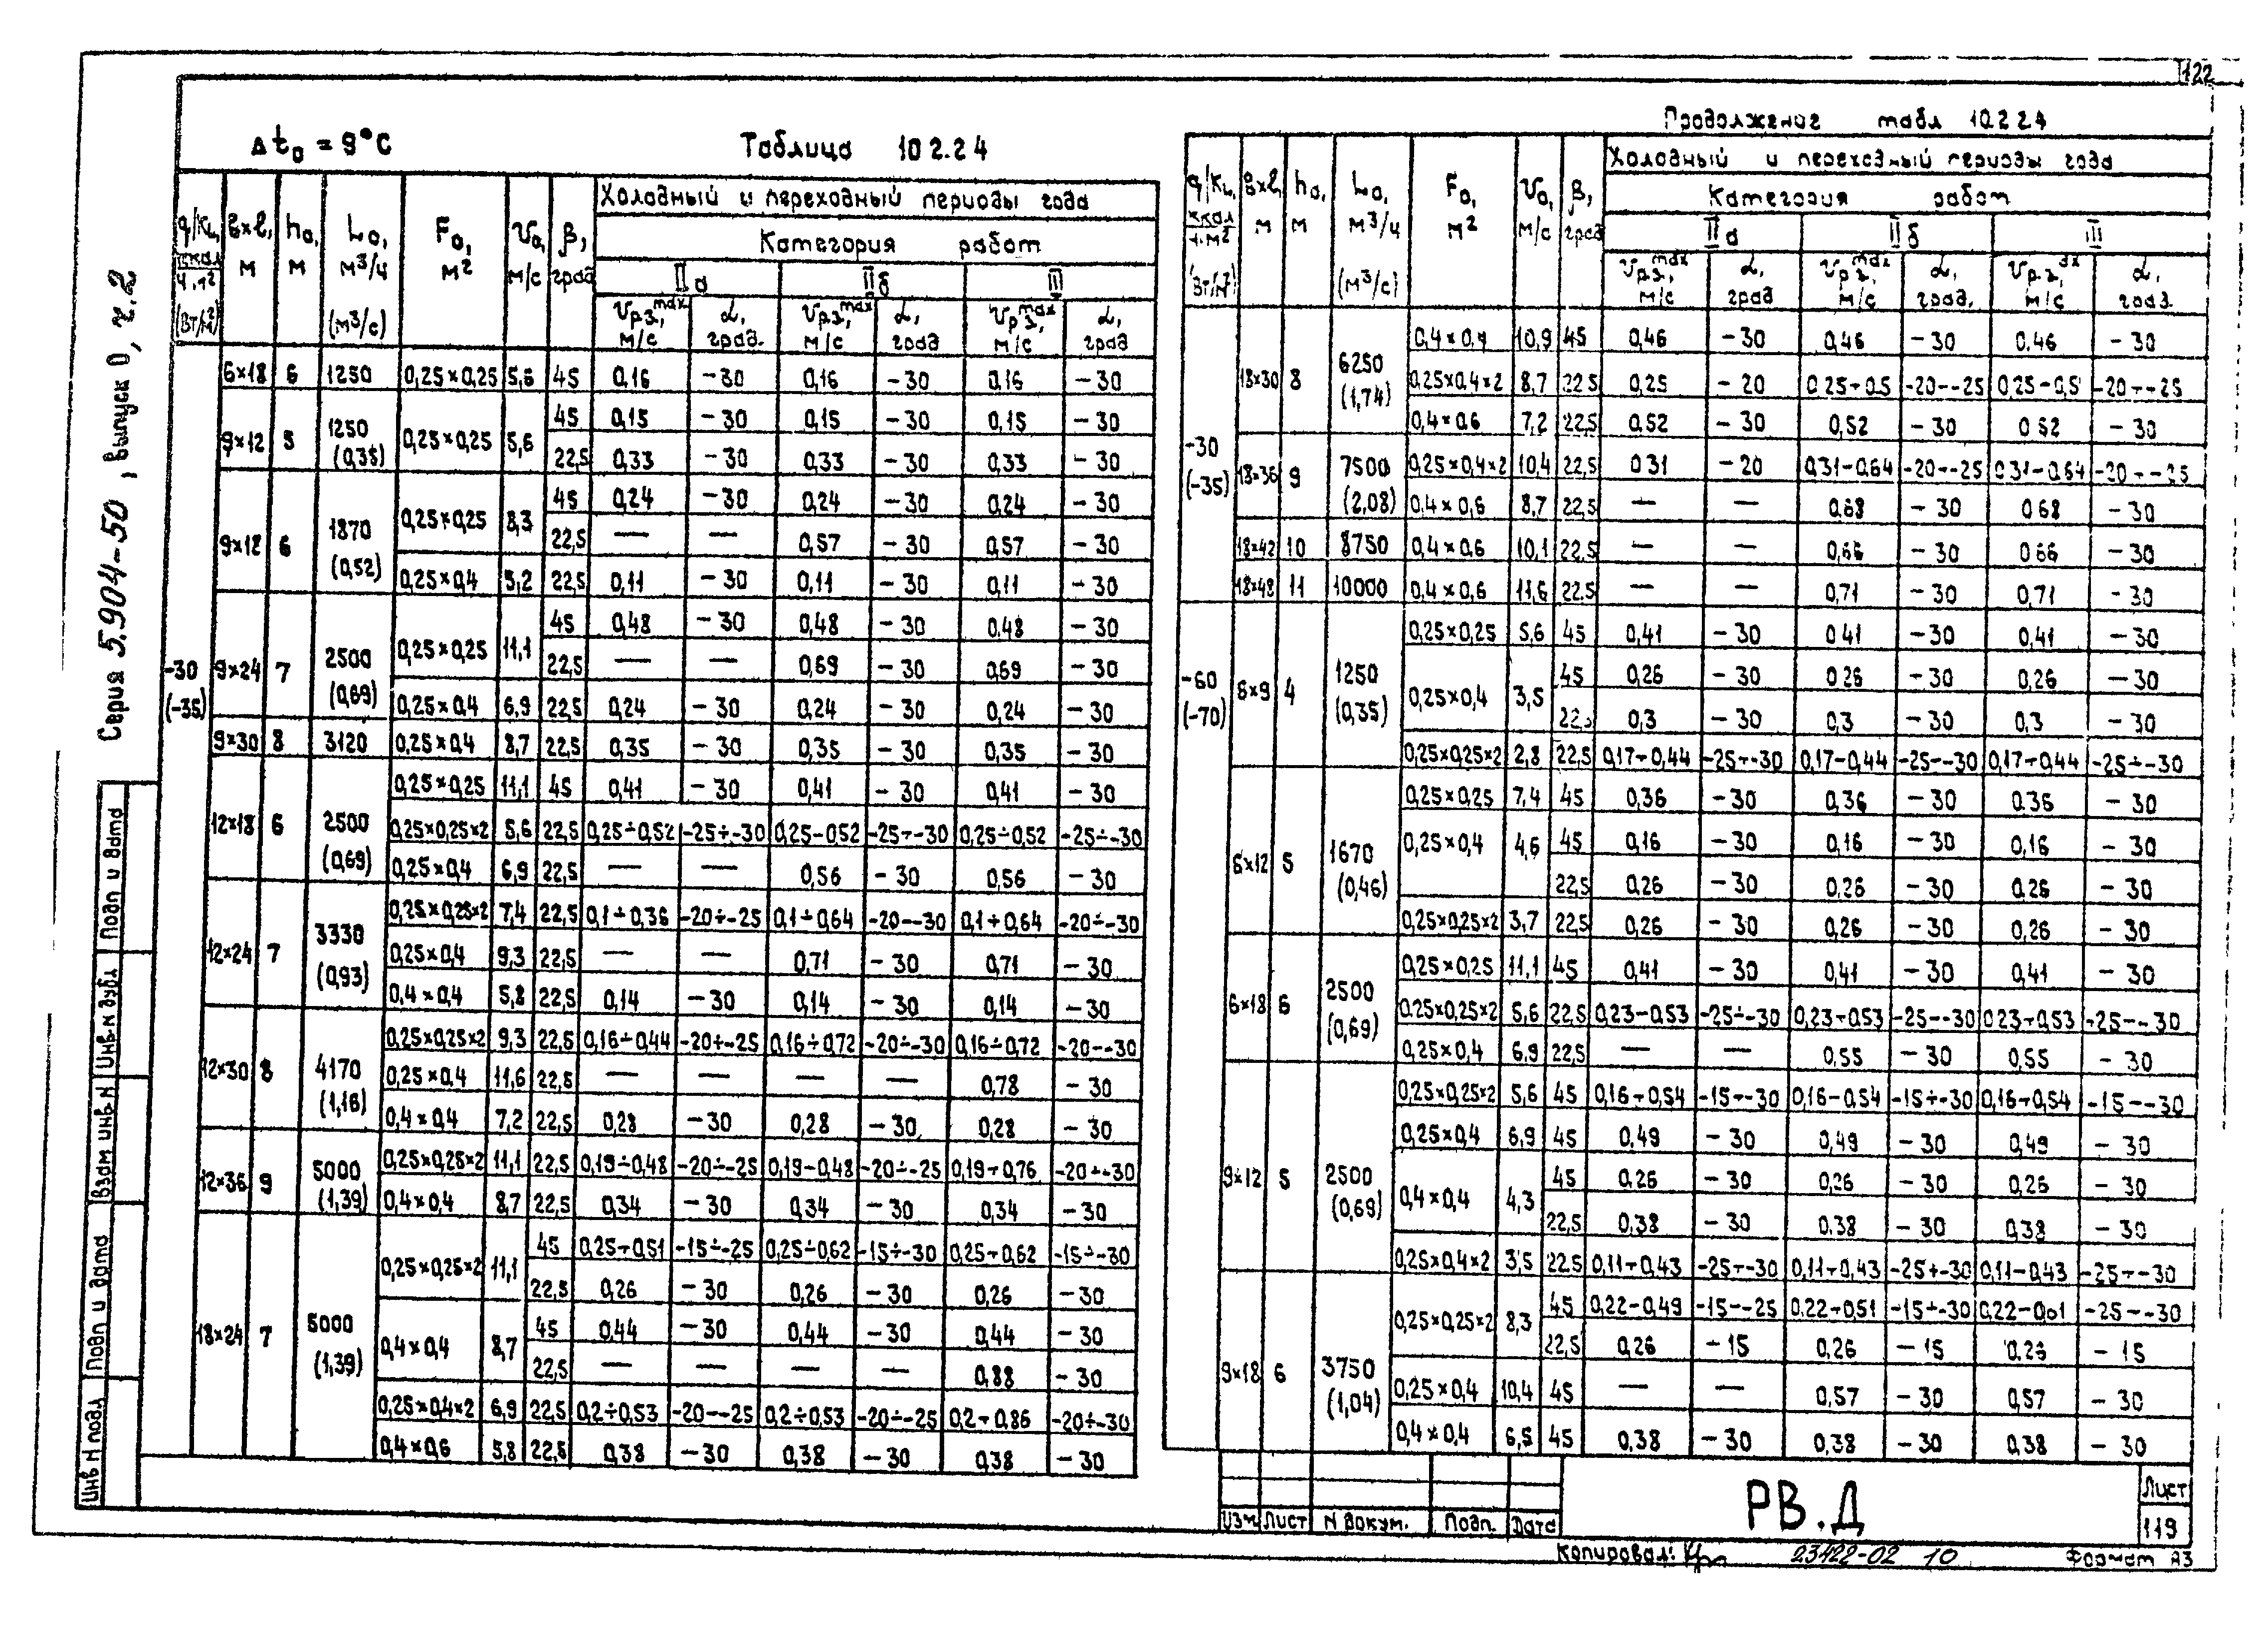 122
Серия 5.904-50, выпуск 0, ч.2
Δt₀ = 9°C Таблица 10 2.24
q/Kц, ккал/ч.м² (Вт/м²) | в×ℓ, м | h₀, м | L₀, м³/ч (м³/с) | F₀, м² | V₀, м/с | β, град | Холодный и переходный периоды года
Категория работ
IIа | IIб | III
Vр.з.max, м/с | α, град. | Vр.з.max, м/с | α, град | Vр.з.max, м/с | α, град
-30 (-35)
6×18 | 6 | 1250 | 0,25×0,25 | 5,6 | 45 | 0,16 | -30 | 0,16 | -30 | 0,16 | -30
9×12 | 5 | 1250 (0,35) | 0,25×0,25 | 5,6 | 45 | 0,15 | -30 | 0,15 | -30 | 0,15 | -30
22,5 | 0,33 | -30 | 0,33 | -30 | 0,33 | -30
9×18 | 6 | 1870 (0,52) | 0,25×0,25 | 8,3 | 45 | 0,24 | -30 | 0,24 | -30 | 0,24 | -30
22,5 | — | — | 0,57 | -30 | 0,57 | -30
0,25×0,4 | 5,2 | 22,5 | 0,11 | -30 | 0,11 | -30 | 0,11 | -30
9×24 | 7 | 2500 (0,69) | 0,25×0,25 | 11,1 | 45 | 0,48 | -30 | 0,48 | -30 | 0,48 | -30
22,5 | — | — | 0,69 | -30 | 0,69 | -30
0,25×0,4 | 6,9 | 22,5 | 0,24 | -30 | 0,24 | -30 | 0,24 | -30
9×30 | 8 | 3120 | 0,25×0,4 | 8,7 | 22,5 | 0,35 | -30 | 0,35 | -30 | 0,35 | -30
12×18 | 6 | 2500 (0,69) | 0,25×0,25 | 11,1 | 45 | 0,41 | -30 | 0,41 | -30 | 0,41 | -30
0,25×0,25×2 | 5,6 | 22,5 | 0,25÷0,52 | -25÷-30 | 0,25-0,52 | -25÷-30 | 0,25÷0,52 | -25÷-30
0,25×0,4 | 6,9 | 22,5 | — | — | 0,56 | -30 | 0,56 | -30
12×24 | 7 | 3330 (0,93) | 0,25×0,25×2 | 7,4 | 22,5 | 0,1÷0,36 | -20÷-25 | 0,1÷0,64 | -20--30 | 0,1÷0,64 | -20÷-30
0,25×0,4 | 9,3 | 22,5 | — | — | 0,71 | -30 | 0,71 | -30
0,4×0,4 | 5,8 | 22,5 | 0,14 | -30 | 0,14 | -30 | 0,14 | -30
12×30 | 8 | 4170 (1,16) | 0,25×0,25×2 | 9,3 | 22,5 | 0,16÷0,44 | -20÷-25 | 0,16÷0,72 | -20÷-30 | 0,16÷0,72 | -20--30
0,25×0,4 | 11,6 | 22,5 | — | — | — | — | 0,78 | -30
0,4×0,4 | 7,2 | 22,5 | 0,28 | -30 | 0,28 | -30 | 0,28 | -30
12×36 | 9 | 5000 (1,39) | 0,25×0,25×2 | 11,1 | 22,5 | 0,19÷0,48 | -20÷-25 | 0,19-0,48 | -20÷-25 | 0,19÷0,76 | -20÷-30
0,4×0,4 | 8,7 | 22,5 | 0,34 | -30 | 0,34 | -30 | 0,34 | -30
18×24 | 7 | 5000 (1,39) | 0,25×0,25×2 | 11,1 | 45 | 0,25÷0,51 | -15÷-25 | 0,25÷0,62 | -15÷-30 | 0,25÷0,62 | -15÷-30
22,5 | 0,26 | -30 | 0,26 | -30 | 0,26 | -30
0,4×0,4 | 8,7 | 45 | 0,44 | -30 | 0,44 | -30 | 0,44 | -30
22,5 | — | — | — | — | 0,88 | -30
0,25×0,4×2 | 6,9 | 22,5 | 0,2÷0,53 | -20--25 | 0,2÷0,53 | -20÷-25 | 0,2÷0,86 | -20÷-30
0,4×0,6 | 5,8 | 22,5 | 0,38 | -30 | 0,38 | -30 | 0,38 | -30
Продолжение табл 10.2 24
q/Kц, ккал/ч.м² (Вт/м²) | в×ℓ, м | h₀, м | L₀, м³/ч (м³/с) | F₀, м² | V₀, м/с | β, град | Холодный и переходный периоды года
Категория работ
IIа | IIб | III
Vр.з.max, м/с | α, град | Vр.з.max, м/с | α, град. | Vр.з., м/с | α, град.
-30 (-35)
18×30 | 8 | 6250 (1,74) | 0,4×0,4 | 10,9 | 45 | 0,46 | -30 | 0,46 | -30 | 0.46 | -30
0,25×0,4×2 | 8,7 | 22 5 | 0,25 | -20 | 0 25÷0,5 | -20--25 | 0,25-0,5 | -20÷-25
0,4×0,6 | 7,2 | 22,5 | 0,52 | -30 | 0,52 | -30 | 0 52 | -30
18×36 | 9 | 7500 (2,08) | 0,25×0,4×2 | 10,4 | 22,5 | 0 31 | -20 | 0,31-0,64 | -20--25 | 0,31-0,64 | -20÷-25
0,4×0,6 | 8,7 | 22,5 | — | — | 0,68 | -30 | 0 68 | -30
18×42 | 10 | 8750 | 0,4×0,6 | 10,1 | 22,5 | — | — | 0,66 | -30 | 0 66 | -30
18×48 | 11 | 10000 | 0,4×0,6 | 11,6 | 22,5 | — | — | 0,71 | -30 | 0,71 | -30
-60 (-70)
6×9 | 4 | 1250 (0,35) | 0,25×0,25 | 5,6 | 45 | 0,41 | -30 | 0 41 | -30 | 0,41 | -30
0,25×0,4 | 3,5 | 45 | 0,26 | -30 | 0 26 | -30 | 0,26 | -30
22,5 | 0,3 | -30 | 0,3 | -30 | 0,3 | -30
0,25×0,25×2 | 2,8 | 22,5 | 0,17÷0,44 | -25÷-30 | 0,17-0,44 | -25--30 | 0,17÷0,44 | -25÷-30
6×12 | 5 | 1670 (0,46) | 0,25×0,25 | 7,4 | 45 | 0,36 | -30 | 0,36 | -30 | 0.36 | -30
0,25×0,4 | 4,6 | 45 | 0,16 | -30 | 0,16 | -30 | 0,16 | -30
22,5 | 0,26 | -30 | 0,26 | -30 | 0,26 | -30
0,25×0,25×2 | 3,7 | 22,5 | 0,26 | -30 | 0,26 | -30 | 0,26 | -30
6×18 | 6 | 2500 (0,69) | 0,25×0,25 | 11,1 | 45 | 0,41 | -30 | 0,41 | -30 | 0,41 | -30
0,25×0,25×2 | 5,6 | 22,5 | 0,23-0,53 | -25÷-30 | 0,23÷0,53 | -25--30 | 0,23÷0,53 | -25--30
0,25×0,4 | 6,9 | 22,5 | — | — | 0,55 | -30 | 0,55 | -30
9×12 | 5 | 2500 (0,69) | 0,25×0,25×2 | 5,6 | 45 | 0,16÷0,54 | -15÷-30 | 0,16-0,54 | -15÷-30 | 0,16÷0,54 | -15--30
0,25×0,4 | 6,9 | 45 | 0,49 | -30 | 0,49 | -30 | 0,49 | -30
0,4×0,4 | 4,3 | 45 | 0,26 | -30 | 0,26 | -30 | 0,26 | -30
22,5 | 0,38 | -30 | 0,38 | -30 | 0,38 | -30
0,25×0,4×2 | 3,5 | 22,5 | 0,11÷0,43 | -25÷-30 | 0,11÷0,43 | -25÷-30 | 0,11-0,43 | -25÷-30
9×18 | 6 | 3750 (1,04) | 0,25×0,25×2 | 8,3 | 45 | 0,22-0,49 | -15--25 | 0,22÷0,51 | -15÷-30 | 0,22- | -25--30
22,5 | 0,26 | -15 | 0,26 | -15 | 0,26 | -15
0,25×0,4 | 10,4 | 45 | — | — | 0,57 | -30 | 0,57 | -30
0,4×0,4 | 6,5 | 45 | 0,38 | -30 | 0,38 | -30 | 0,38 | -30
Инв N подл | Подп и дата | Взам инв N | Инв N дубл | Подп и дата
Изм | Лист | N докум. | Подп. | Дата
РВ.Д
Лист
119
Копировал: 23422-02 10 Формат А3